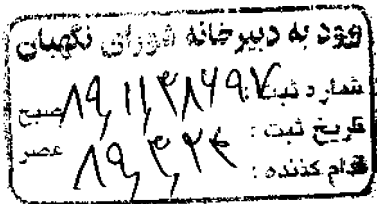 ورود به دبیرخانه شورای نگهبان
شماره ثبت : صبح
تاریخ ثبت : ۸۹,۳,۲۴ عصر
اقدام کننده :